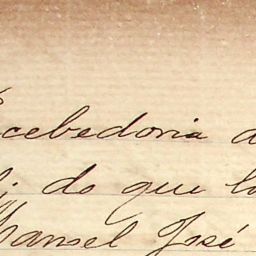 cebedoria d
do que
Manoel José